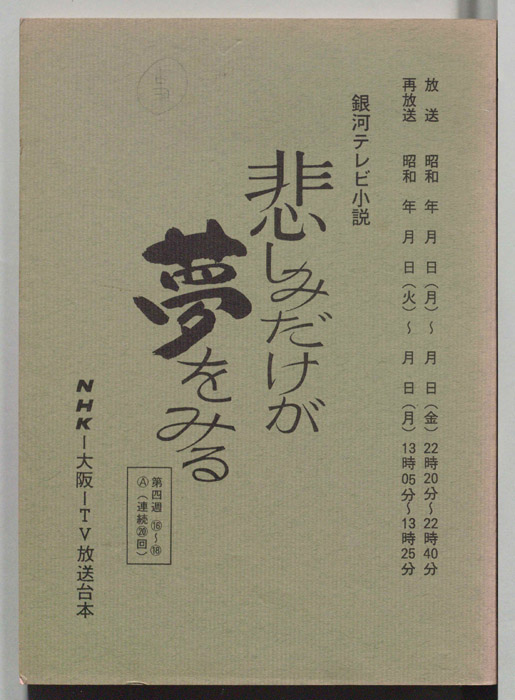 放送 昭和 年 月 日(月)～ 月 日(金) 22時20分～22時40分
再放送 昭和 年 月 日(火)～ 月 日(月) 13時05分～13時25分
銀河テレビ小説
悲しみだけが
夢をみる
第四週 ⑯～⑱
Ⓐ(連続⑳回)
NHK－大阪－TV放送台本